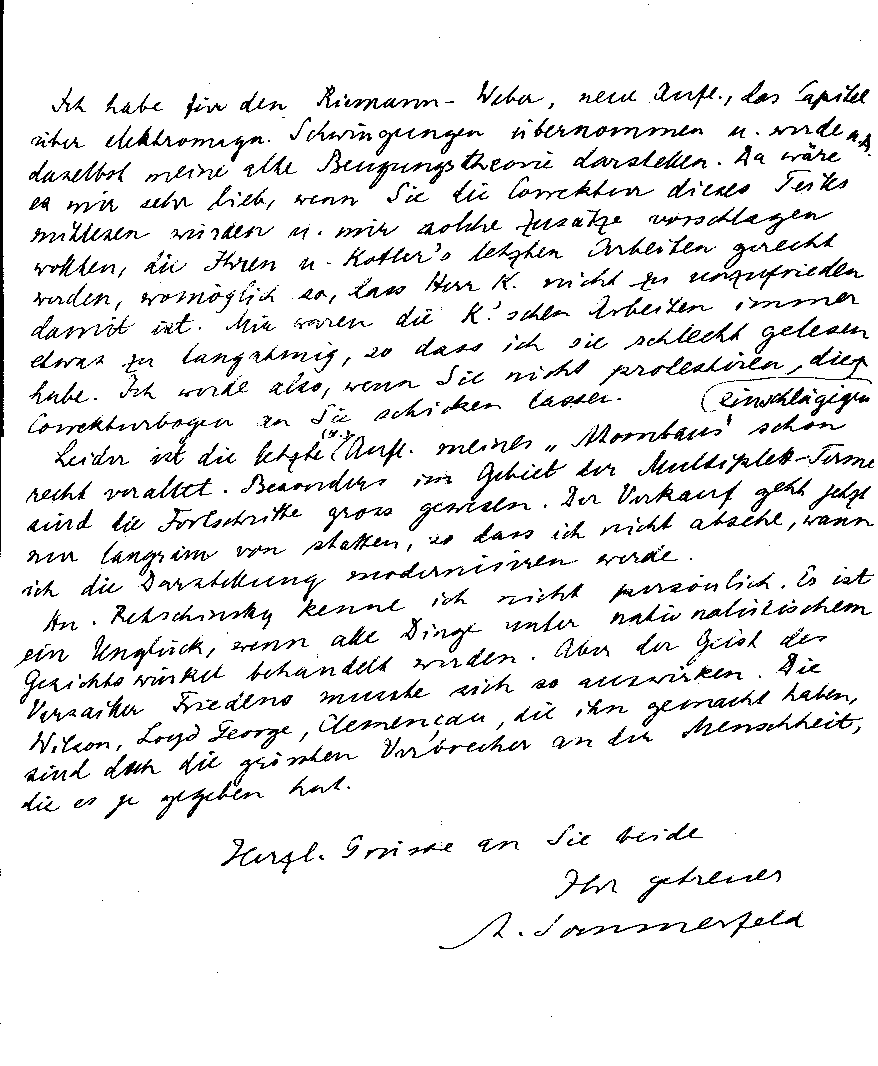 Ich habe für den Riemann-Weber, neue Aufl., das Capitel
über elektromagn. Schwingungen übernommen u. werde u.A.
daselbst meine alte Beugungstheorie darstellen. Da wäre
es mir sehr lieb, wenn Sie die Correktur dieses Teiles
mitlesen würden u. mir solche Zusätze vorschlagen
wollten, die Ihren u. Kottler's letzten Arbeiten gerecht
werden, womöglich so, dass Herr K. nicht zu unzufrieden
damit ist. Mir waren die K.'schen Arbeiten immer
etwas zu langatmig, so dass ich sie schlecht gelesen
habe. Ich werde also, wenn Sie nicht protestiren, die
einschlägigen
Correkturbogen an Sie schicken lassen.
Leider ist die letzte (4.) Aufl. meines „Atombaus" schon
recht veraltet. Besonders im Gebiet der Multiplett-Terme
sind die Fortschritte gross gewesen. Der Verkauf geht jetzt
nur langsam von statten, so dass ich nicht absehe, wann
ich die Darstellung modernisiren werde.
Hn. Retschinsky kenne ich nicht persönlich. Es ist
ein Unglück, wenn alle Dinge unter nationalistischem
Gesichtswinkel behandelt werden. Aber der Geist des
Versailler Friedens musste sich so auswirken. Die
Wilson, Loyd George, Clemenceau, die ihn gemacht haben,
sind doch die grössten Verbrecher an der Menschheit,
die es je gegeben hat.
Herzl. Grüsse an Sie beide
Ihr getreuer
A. Sommerfeld